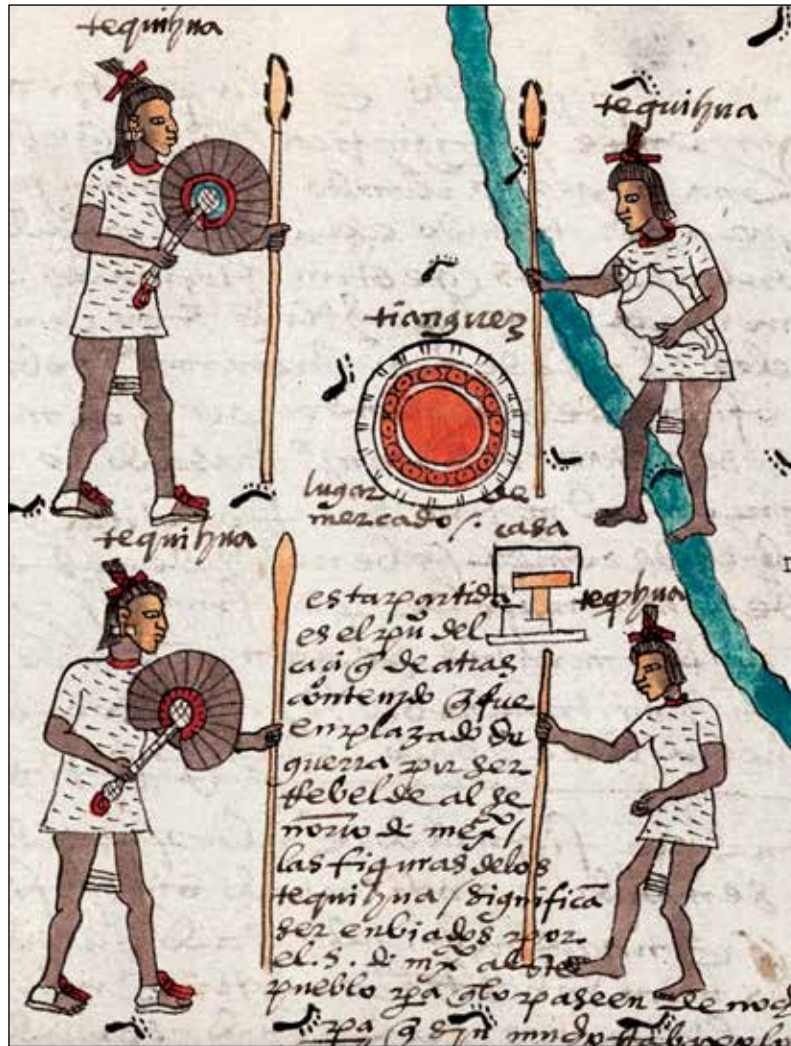 tequihua
tequihua
tianguez
lugar de
mercado /.
casa
tequihua
teqihua
esta partida
es el pu del
caciq de atras
contenido q fue
enplazado de
guerra por ser
Rebelde al se
norio de mexº /
las figuras de los
tequihua / significā
ser enbiados por
el .s. de mexº al dho
pueblo pa q lo paseen de noch